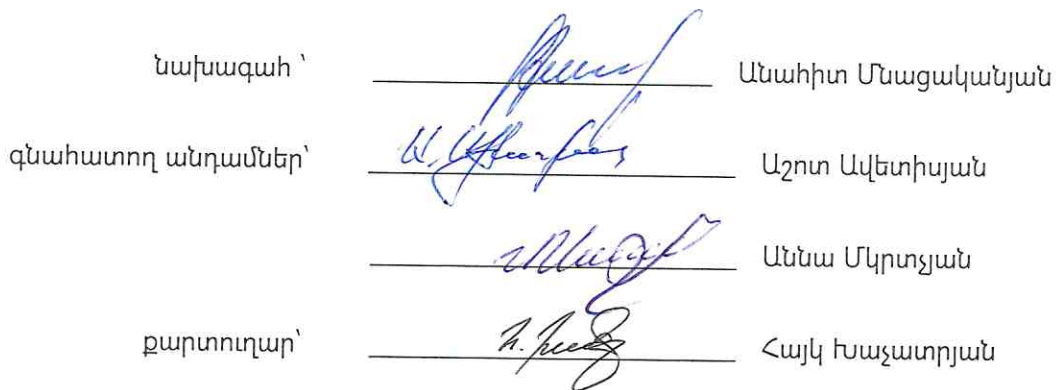 նախագահ ՝ Անահիտ Մնացականյան
գնահատող անդամներ՝ Աշոտ Ավետիսյան
Աննա Մկրտչյան
քարտուղար՝ Հայկ Խաչատրյան